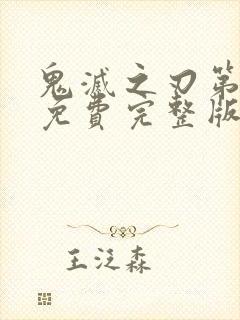 鬼滅之刃第
免費完整版
王泛森